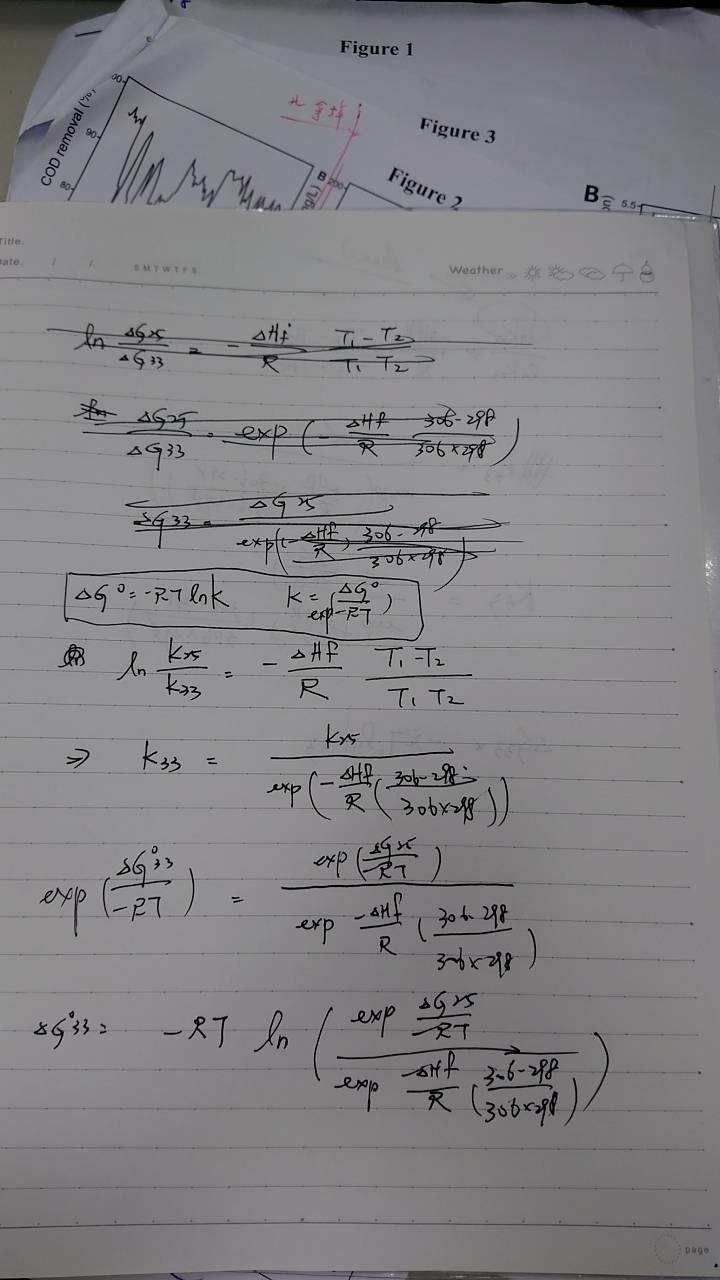 Figure 1
Figure 3
Figure 2
COD removal (%)
90
80
B
200
B
5.5
Title.
Date. / /
S M T W T F S
Weather
ln ΔG25/ΔG33 = - ΔHf/R (T1 - T2)/(T1 T2)
ΔG25/ΔG33 = exp (- ΔHf/R (306-298)/(306×298))
ΔG33 = ΔG25/exp(-ΔHf/R) (306-298)/(306×298)
ΔG° = -RT ln k    K = exp(ΔG°/-RT)
ln K25/K33 = - ΔHf/R (T1 - T2)/(T1 T2)
⇒ K33 = K25/exp(-ΔHf/R ((306-298)/(306×298)))
exp (ΔG°33/-RT) = exp(ΔG25/-RT)/exp -ΔHf/R ((306-298)/(306×298))
ΔG°33 = -RT ln (exp ΔG25/-RT / exp -ΔHf/R ((306-298)/(306×298)))
page